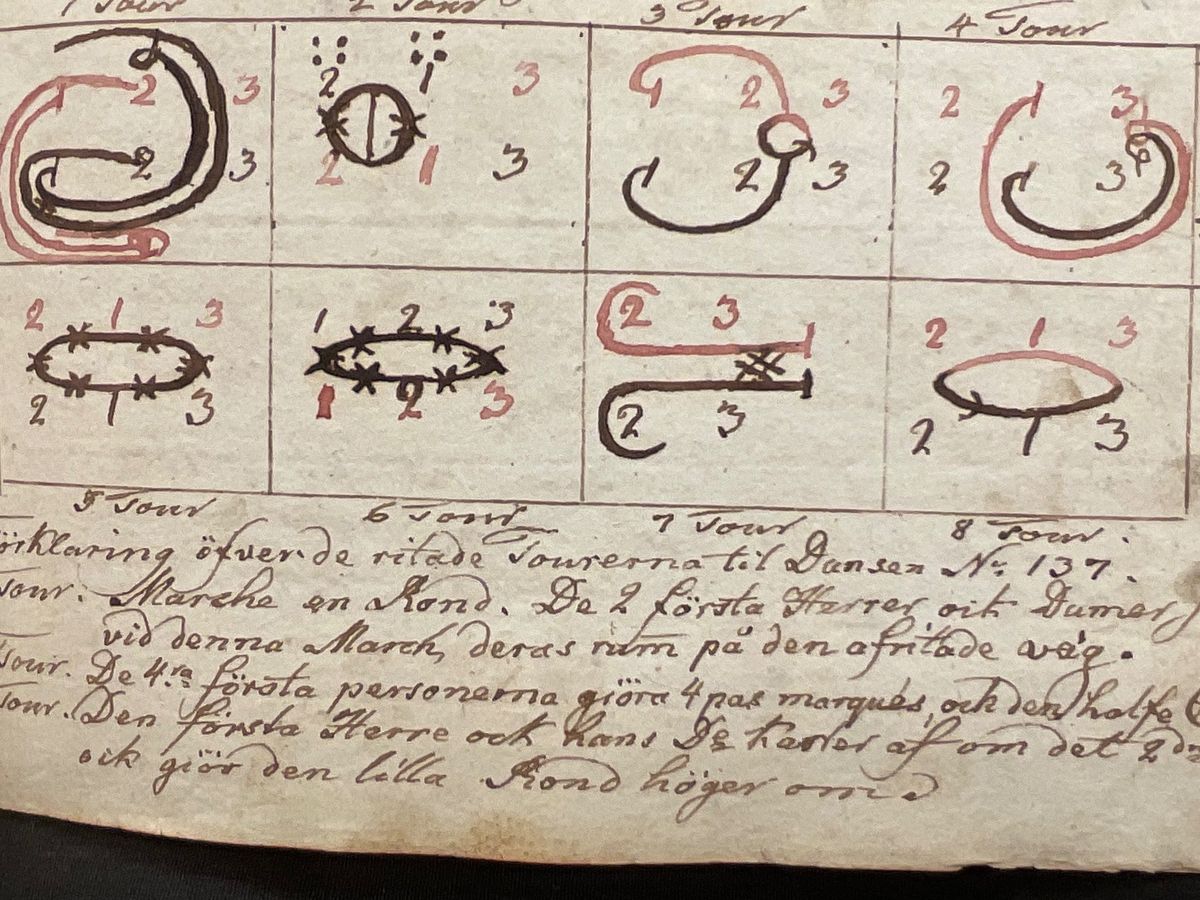 1 Tour 2 Tour 3 Tour 4 Tour
2 3 2 1 3 1 2 3 2 1 3
2 3 2 1 3 1 2 3 2 1 3
2 1 3 1 2 3 2 3 1 2 1 3
2 1 3 1 2 3 2 3 2 1 3
5 Tour 6 Tour 7 Tour 8 Tour.
örklaring öfver de ritade Tourerna til Dansen No: 137.
Tour. Marche en Rond. De 2 första Herrer och Damer
vid denna March, deras rum på den afritade väg.
Tour. De 4.ra första personerna giöra 4 pas marqués, och den halfe
Tour. Den första Herre och hans De kaster af om det 2dra
och giör den lilla Rond höger om